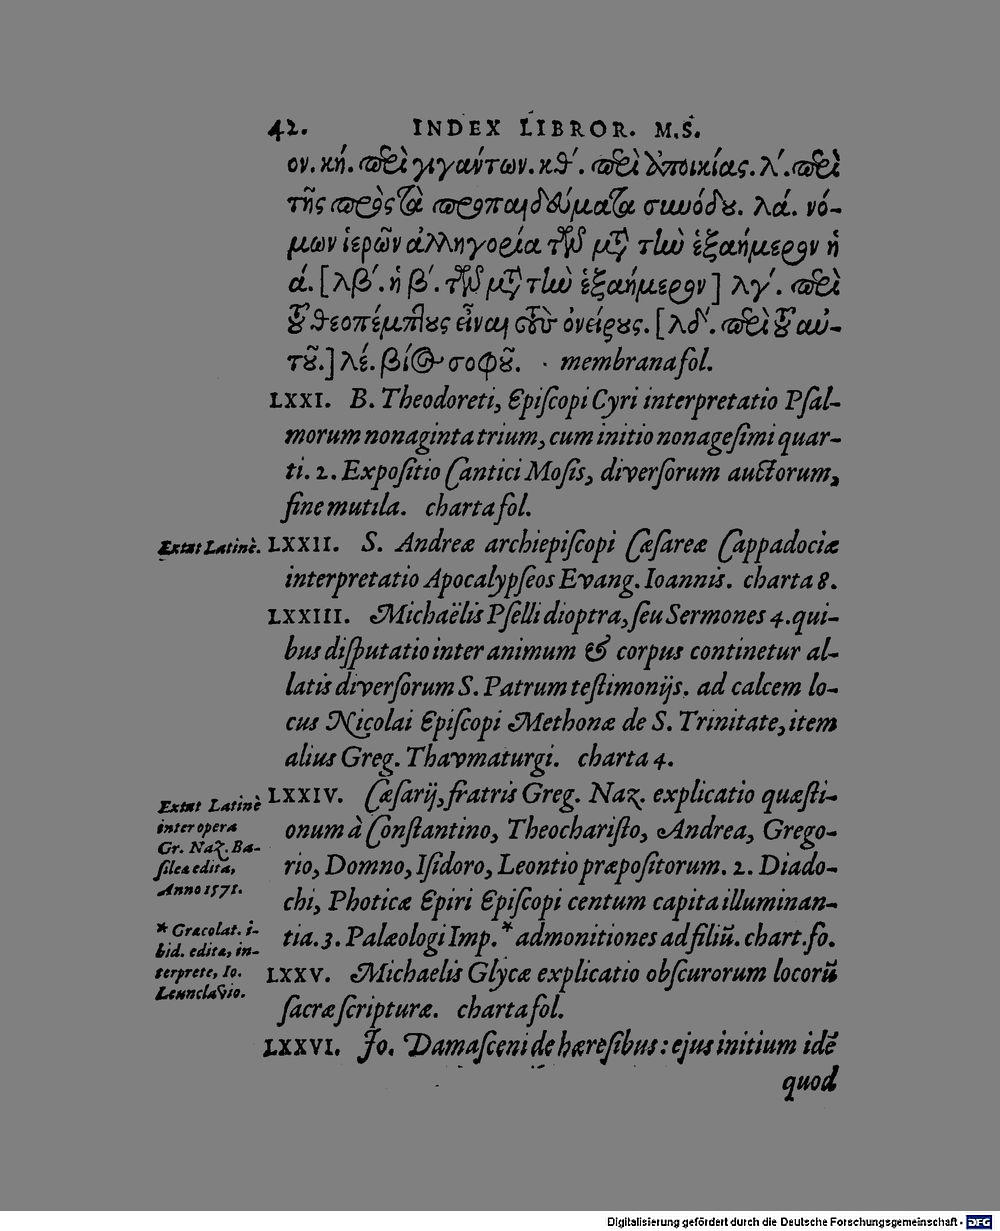 42. INDEX LIBROR. M.S.
ον. κή. περὶ γιγάντων. κθ΄. περὶ ἀποικίας. λ΄. περὶ
τῆς πρὸς τὰ προπαιδεύματα συνόδου. λά. νό-
μων ἱερῶν ἀλληγορία τῶν μετὰ τὴν ἑξαήμερον ἡ
ά. [λβ΄. ἡ β΄. τῶν μετὰ τὴν ἑξαήμερον] λγ΄. περὶ
τοῦ θεοπέμπτους εἶναι τοὺς ὀνείρους. [λδ΄. περὶ τοῦ αὐ-
τοῦ.] λέ. βίος σοφοῦ. membrana fol.
LXXI. B. Theodoreti, Episcopi Cyri interpretatio Psal-
morum nonaginta trium, cum initio nonagesimi quar-
ti. 2. Expositio Cantici Mosis, diversorum auctorum,
fine mutila. charta fol.
Extat Latinè. LXXII. S. Andreæ archiepiscopi Cæsareæ Cappadociæ
interpretatio Apocalypseos Evang. Ioannis. charta 8.
LXXIII. Michaëlis Pselli dioptra, seu Sermones 4. qui-
bus disputatio inter animum & corpus continetur al-
latis diversorum S. Patrum testimonijs. ad calcem lo-
cus Nicolai Episcopi Methonæ de S. Trinitate, item
alius Greg. Thavmaturgi. charta 4.
LXXIV. Cæsarij, fratris Greg. Naz. explicatio quæsti-
onum à Constantino, Theocharisto, Andrea, Grego-
rio, Domno, Isidoro, Leontio præpositorum. 2. Diado-
chi, Photicæ Epiri Episcopi centum capita illuminan-
tia. 3. Palæologi Imp. * admonitiones ad filiũ. chart. fo.
Extat Latinè
inter opera
Gr. Naz. Ba-
sileæ edita,
Anno 1571.
* Græcolat. i-
bid. edita, in-
terprete, Io.
Leunclavio.
LXXV. Michaelis Glycæ explicatio obscurorum locorũ
sacræ scripturæ. charta fol.
LXXVI. Jo. Damasceni de hæresibus: ejus initium idẽ
quod
Digitalisierung gefördert durch die Deutsche Forschungsgemeinschaft - DFG